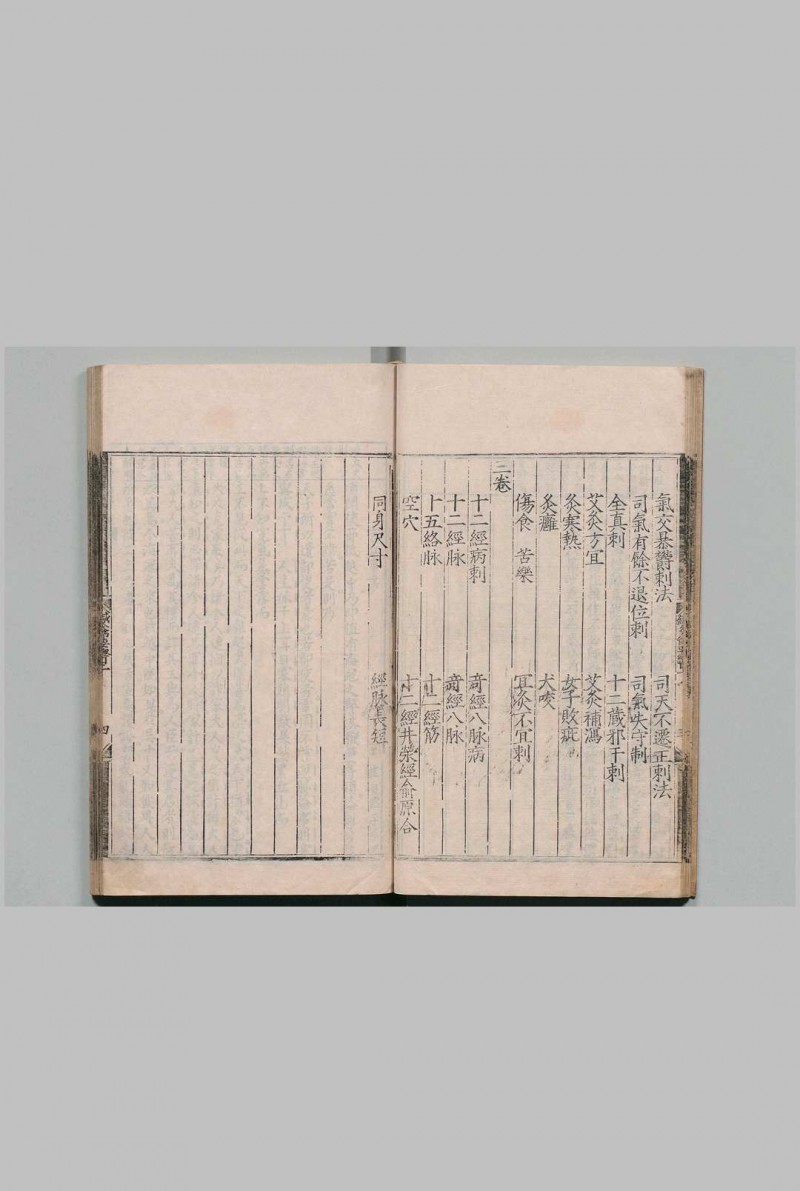 氣交暴鬱刺法 司天不遷正刺法
司氣有餘不退位刺 司氣失守制
全真刺 十二藏邪干刺
艾灸方宜 艾灸補瀉
灸寒熱 女子敗疵
灸癰 犬咬
傷食 苦樂 宜灸不宜刺
二卷
十二經病刺 奇經八脉病
十二經脉 奇經八脉
十五絡脉 十二經筋
空穴 十二經井滎經俞原合
同身尺寸 經脉長短
四